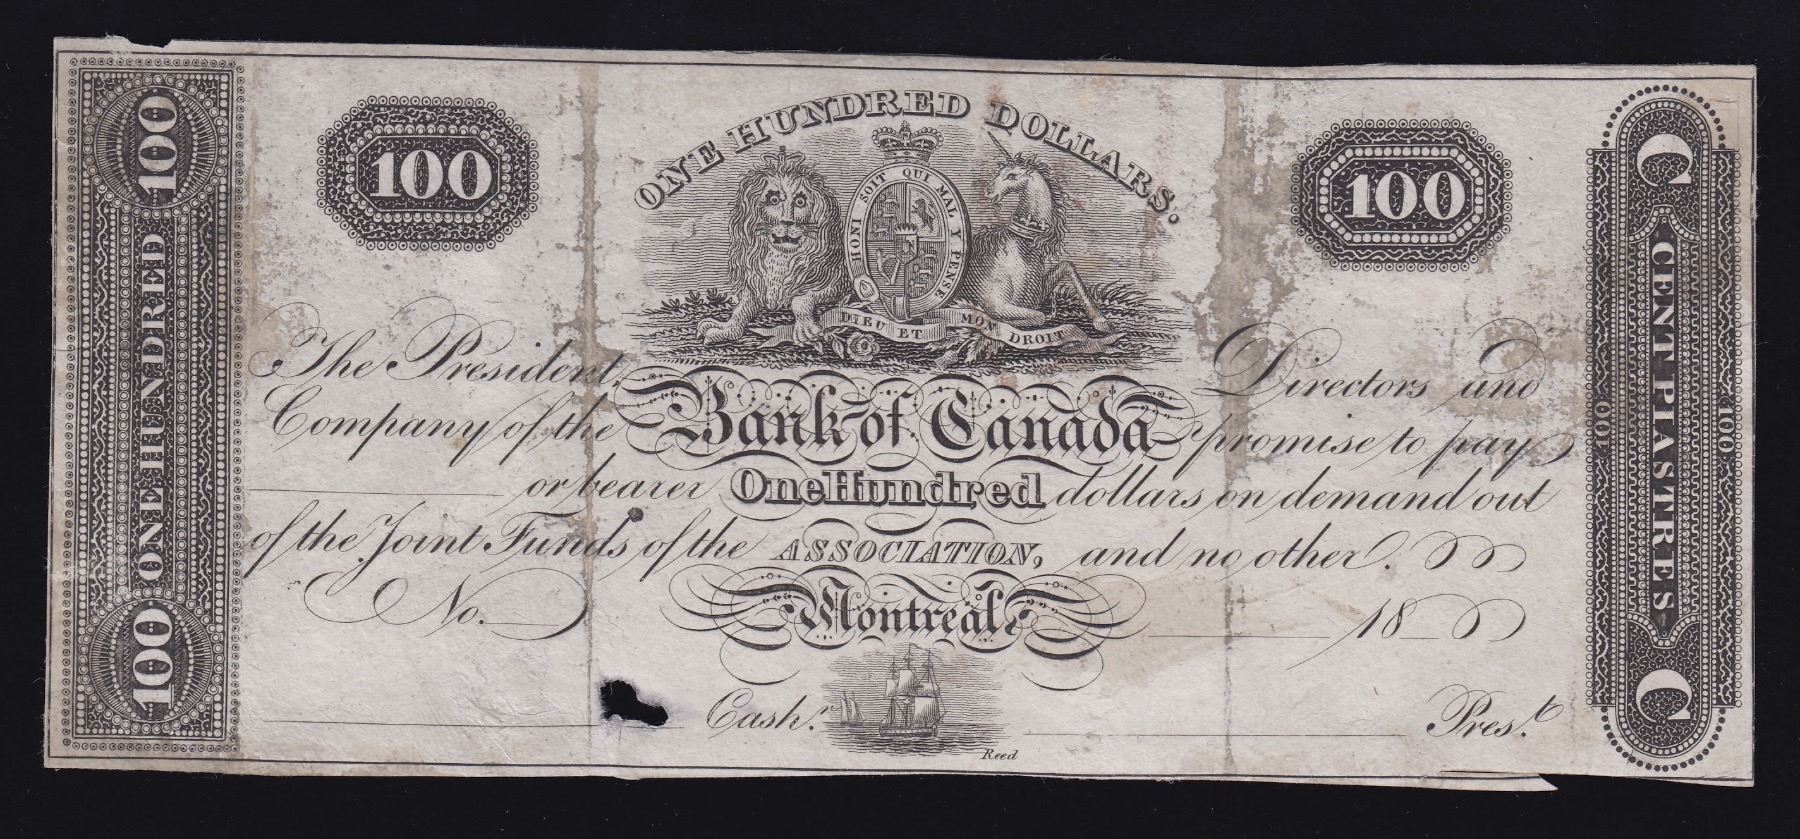 100 ONE HUNDRED 100
100
ONE HUNDRED DOLLARS.
100
HONI SOIT QUI MAL Y PENSE
DIEU ET MON DROIT
The President, Directors and
Company of the Bank of Canada promise to pay
or bearer One Hundred dollars on demand out
of the Joint Funds of the ASSOCIATION, and no other.
No. Montreal 18
Cash.r Pres.t
Reed
C CENT PIASTRES C
100
100